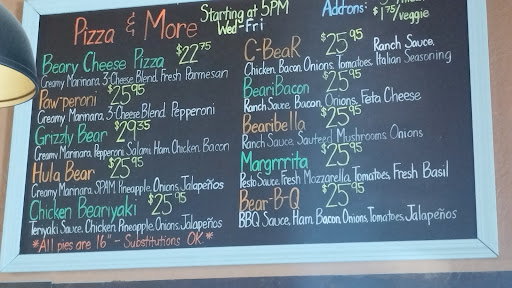 Pizza & More
Starting at 5PM
Wed-Fri
Add-ons:
$1.75/veggie
Beary Cheese Pizza $22.75
Creamy Marinara, 3-Cheese Blend, Fresh Parmesan
Paw-peroni $25.95
Creamy Marinara, 3-Cheese Blend, Pepperoni
Grizzly Bear $29.35
Creamy Marinara, Pepperoni, Salami, Ham, Chicken, Bacon
Hula Bear $25.95
Creamy Marinara, SPAM, Pineapple, Onions, Jalapeños
Chicken Beariyaki $25.95
Teriyaki Sauce, Chicken, Pineapple, Onions, Jalapeños
*All pies are 16" - Substitutions OK*
C-BeaR $25.95 Ranch Sauce,
Chicken, Bacon, Onions, Tomatoes, Italian Seasoning
BeariBacon $25.95
Ranch Sauce, Bacon, Onions, Feta Cheese
Bearibella $25.95
Ranch Sauce, Sauteed Mushrooms, Onions
Margrrrita $25.95
Pesto Sauce, Fresh Mozzarella, Tomatoes, Fresh Basil
Bear-B-Q $25.95
BBQ Sauce, Ham, Bacon, Onions, Tomatoes, Jalapeños